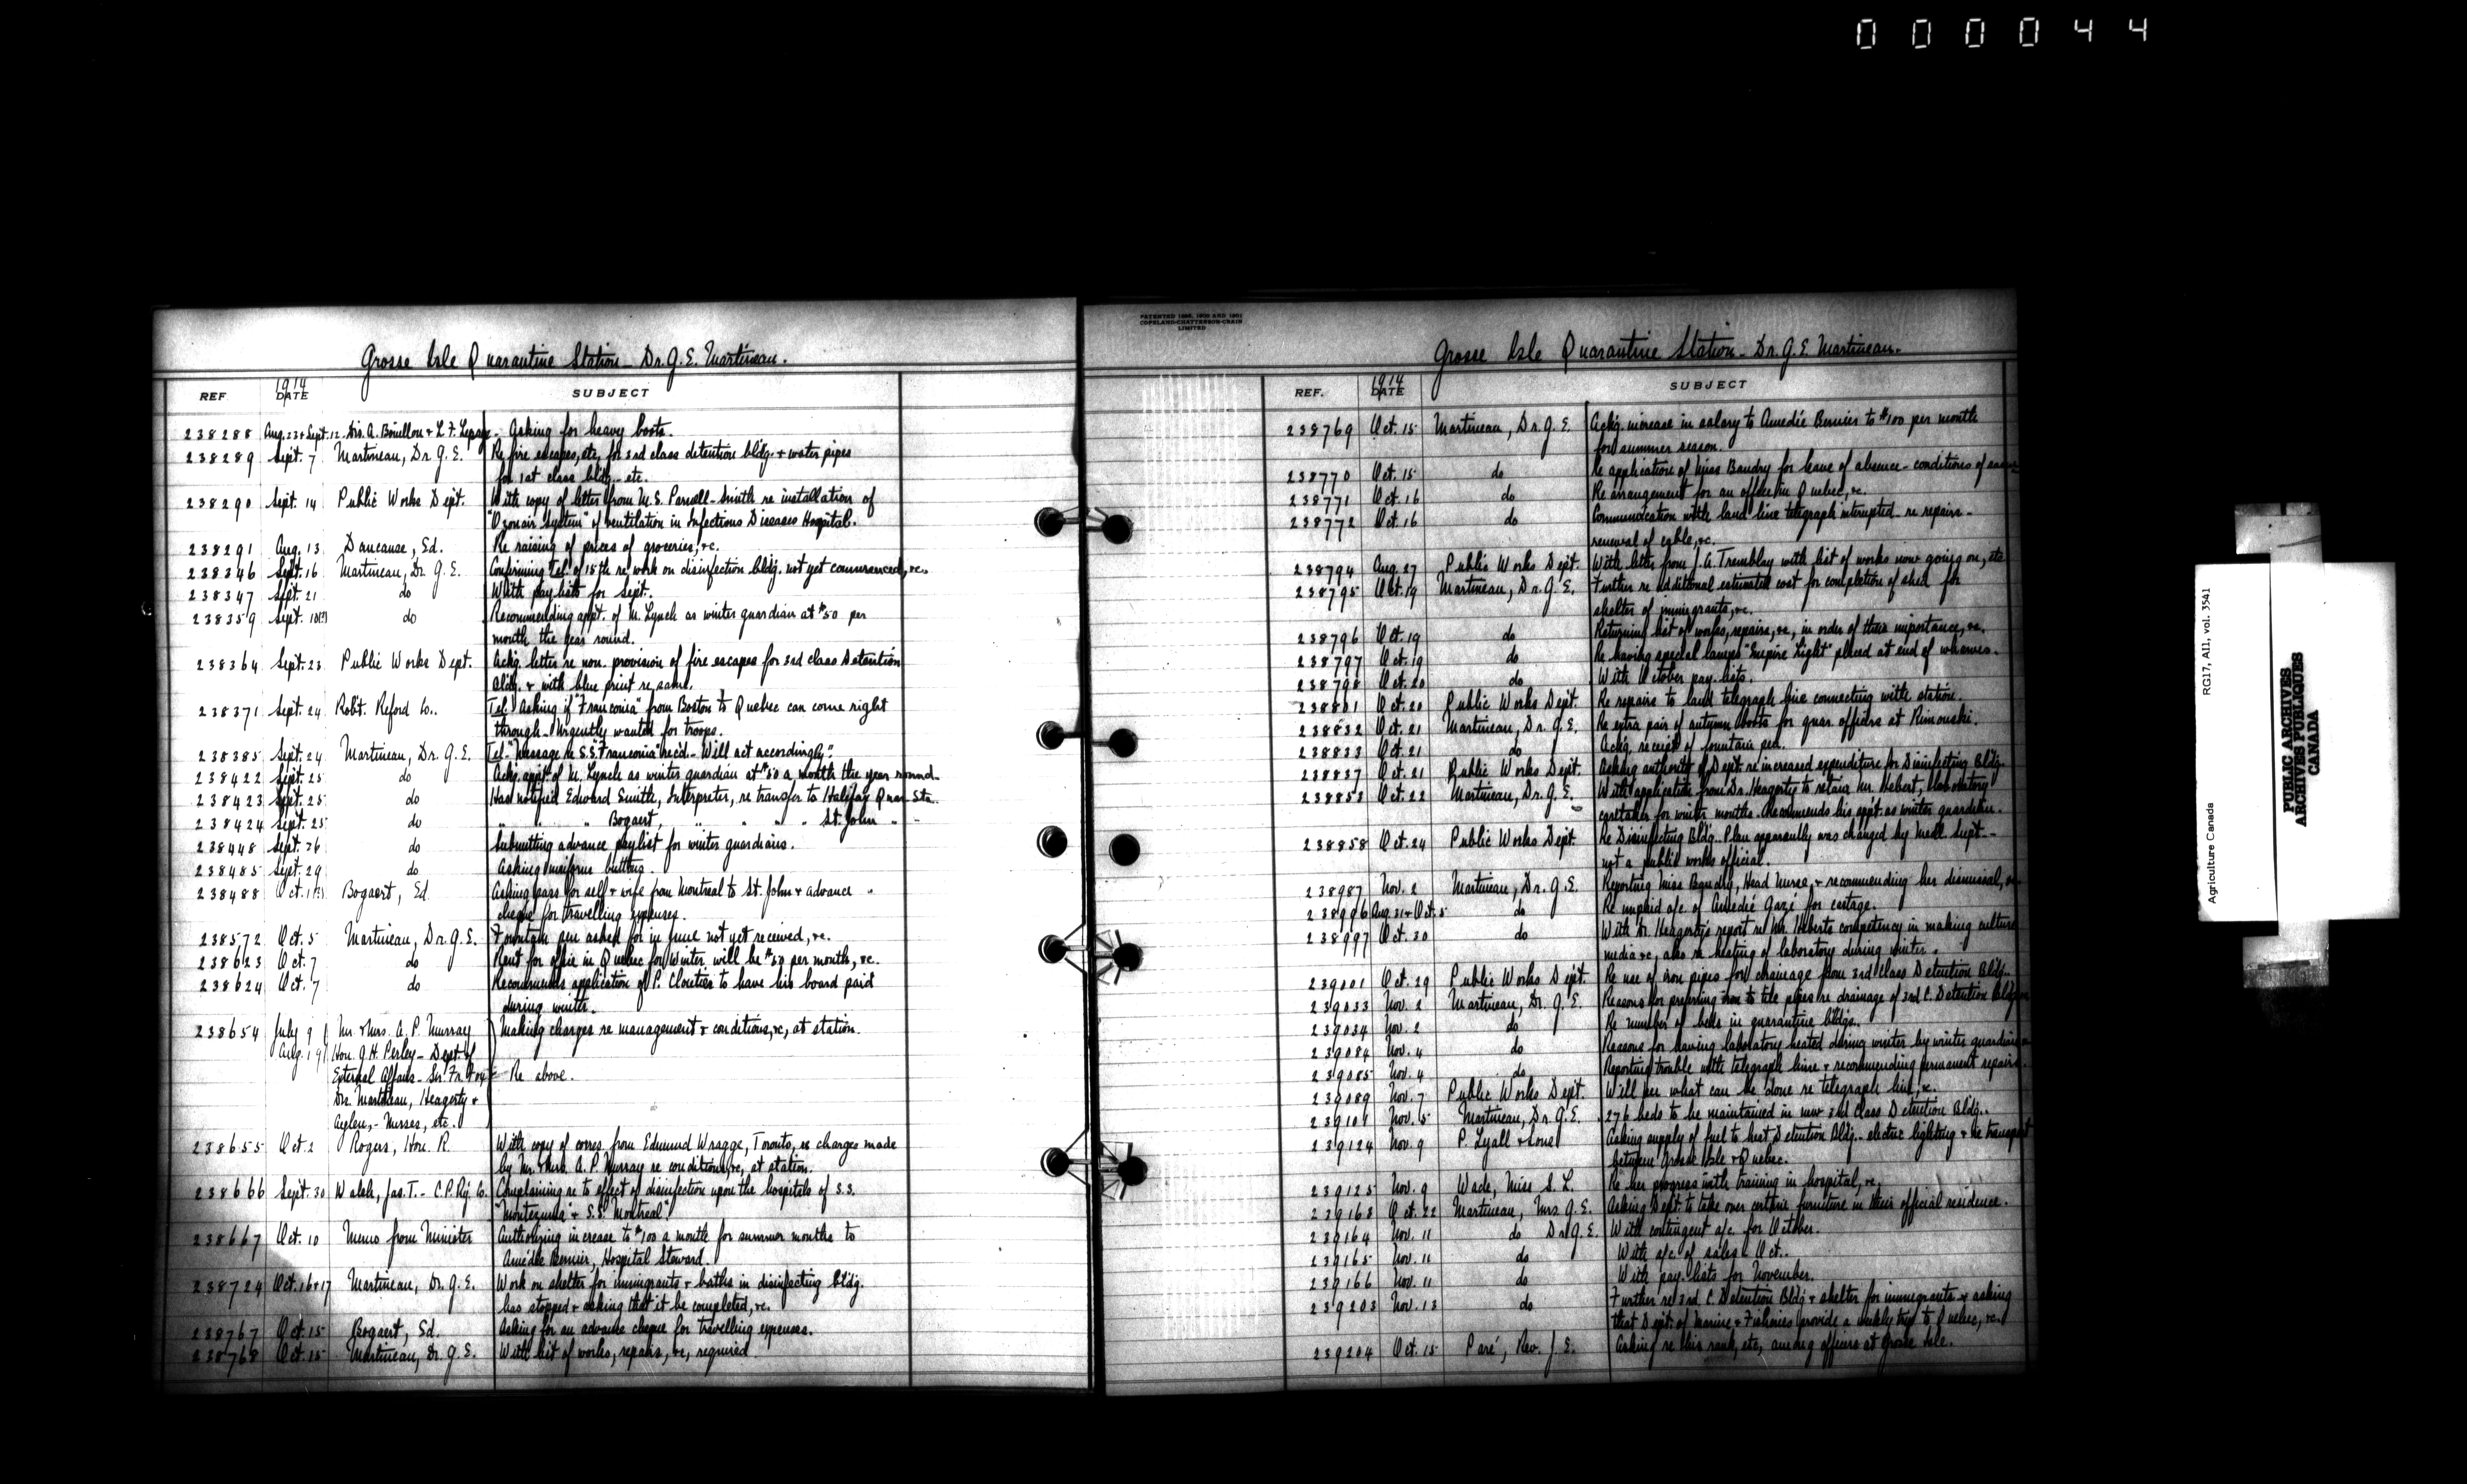 000044
Grosse Isle Quarantine Station - Dr. G. E. Martineau.
REF. 1914 DATE SUBJECT
238288 Aug. 23 & Sept. 12 Drs. A. Bouillon & L. F. Lepage - Asking for heavy boots.
238289 Sept. 7 Martineau, Dr. G. E. Re fire escapes, etc. for 3rd class detention bldg. & water pipes
for 1st class bldg. etc.
238290 Sept. 14 Public Works Dept. With copy of letter from M. S. Parnell-Smith re installation of
"Ozonair System" of ventilation in Infectious Diseases Hospital.
238291 Aug. 13 Dancause, Ed. Re raising of prices of groceries, &c.
238346 Sept. 16 Martineau, Dr. G. E. Confirming Tel. of 15th re work on disinfection bldg. not yet commenced, &c.
238347 Sept. 21 do With pay lists for Sept.
238359 Sept. do Recommending appt. of M. Lynch as winter guardian at $50 per
month the year round.
238364 Sept. 23 Public Works Dept. Ackg. letter re non. provision of fire escapes for 3rd class Detention
Bldg. & with blue print re same.
238371 Sept. 24 Robt. Reford Co.. Tel. Asking if "Franconia" from Boston to Quebec can come right
through - Urgently wanted for troops.
238385 Sept. 24 Martineau, Dr. G. E. Tel. "Message re S.S. "Franconia" rec'd - Will act accordingly".
238422 Sept. 25 do Ackg. appt. of M. Lynch as winter guardian at $50 a month the year round.
238423 Sept. 25 do Has notified Edward Smith, Interpreter, re transfer to Halifax Quar. Sta.
238424 Sept. 25 do " " " Bogaert, " " " " St. John " "
238448 Sept. 26 do Submitting advance paylist for winter guardians.
238485 Sept. 29 do Asking uniform buttons.
238488 Oct. 1 Bogaert, Ed. Asking pass for self & wife from Montreal to St. John & advance "
cheque for travelling expenses.
238572 Oct. 5 Martineau, Dr. G. E. Fountain pen asked for in June not yet received, &c.
238623 Oct. 7 do Rent for office in Quebec for Winter will be $50 per month, &c.
238624 Oct. 7 do Recommends application of P. Cloutier to have his board paid
during winter.
238654 July 9 Mr. & Mrs. A. P. Murray Making charges re management & conditions, &c, at station.
Aug. 19 Hon. G. H. Perley - Dept. of
External Affairs - Sir Fr. Re above.
Drs. Martineau, Heagerty &
Aylen, - Nurses, etc.
238655 Oct. 2 Rogers, Hon. R. With copy of corres. from Edmund Wragge, Toronto, re charges made
by Mr. & Mrs. A. P. Murray re conditions, &c, at station.
238666 Sept. 30 Walsh, Jas. T. - C. P. Ry. Co. Complaining re to effect of disinfection upon the hospitals of S.S.
"Montezuma" & S.S. "Montreal".
238667 Oct. 10 Memo from Minister Authorizing increase to $100 a month for summer months to
Amédée Bernier, Hospital Steward.
238724 Oct. 16 & 17 Martineau, Dr. G. E. Work on shelter for immigrants & baths in disinfecting bldg.
has stopped & asking that it be completed, &c.
238767 Oct. 15 Bogaert, Ed. Asking for an advance cheque for travelling expenses.
238768 Oct. 15 Martineau, Dr. G. E. With list of works, repairs, &c, required
PATENTED 1895, 1900 AND 1901
COPELAND-CHATTERSON-CRAIN
LIMITED
Grosse Isle Quarantine Station - Dr. G. E. Martineau.
REF. 1914 DATE SUBJECT
238769 Oct. 15 Martineau, Dr. G. E. Ackg. increase in salary to Amedée Bernier to $100 per month
for summer season.
238770 Oct. 15 do Re application of Miss Baudry for leave of absence - conditions of same
238771 Oct. 16 do Re arrangement for an office in Quebec, &c.
238772 Oct. 16 do Communication with land line telegraph interupted - re repairs -
renewal of cable, &c.
238794 Aug. 27 Public Works Dept. With letter from J. A. Tremblay with list of works now going on, etc
238795 Oct. 19 Martineau, Dr. G. E. Further re additional estimated cost for completion of shed for
shelter of immigrants, &c.
238796 Oct. 19 do Returning list of works, repairs, &c, in order of their importance, &c.
238797 Oct. 19 do Re having special lamps "Empire Light" placed at end of wharves.
238798 Oct. 20 do With October pay-lists.
238801 Oct. 20 Public Works Dept. Re repairs to land telegraph line connecting with station.
238832 Oct. 21 Martineau, Dr. G. E. Re extra pair of autumn boots for quar. officers at Rimouski.
238833 Oct. 21 do Ackg. receipt of fountain pen.
238837 Oct. 21 Public Works Dept. Asking authority of Dept. re increased expenditure for Disinfecting Bldg.
238853 Oct. 22 Martineau, Dr. G. E. With application from Dr. Heagerty to retain Mr. Hebert, laboratory
caretaker for winter months. Recommends his appt. as winter guardian.
238858 Oct. 24 Public Works Dept. Re Disinfecting Bldg. Plan apparently was changed by Medl. Supt. -
not a public works official.
238987 Nov. 2 Martineau, Dr. G. E. Reporting Miss Baudry, Head Nurse, & recommending her dismissal, &c
238996 Aug. 31 & Oct. 5 do Re unpaid a/c of Amedée Gazé for cartage.
238997 Oct. 30 do With Dr. Heagerty's report re Mr. Heberts competency in making culture
media &c, also re heating of laboratory during winter.
239001 Oct. 29 Public Works Dept. Re use of iron pipes for drainage from 3rd Class Detention Bldg.
239033 Nov. 2 Martineau, Dr. G. E. Reasons for preferring iron to tile pipes re drainage of 3rd C. Detention Bldg.
239034 Nov. 2 do Re number of beds in quarantine bldgs.
239084 Nov. 4 do Reasons for having laboratory heated during winter by winter guardian
239085 Nov. 4 do Reporting trouble with telegraph line & recommending permanent repairs.
239089 Nov. 7 Public Works Dept. Will see what can be done re telegraph line, &c.
239101 Nov. 5 Martineau, Dr. G. E. 276 beds to be maintained in new 3rd class Detention Bldg..
239124 Nov. 9 P. Lyall & Sons Asking supply of fuel to heat Detention Bldg. - electric lighting & re transport
between Grosse Isle & Quebec.
239125 Nov. 9 Wade, Miss S. L. Re her progress with training in hospital, &c.
239163 Oct. 22 Martineau, Mrs. G. E. Asking Dept. to take over certain furniture in their official residence.
239164 Nov. 11 do Dr. G. E. With contingent a/c. for October.
239165 Nov. 11 do With a/c of sales - Oct..
239166 Nov. 11 do With pay-lists for November.
239203 Nov. 13 do Further re 3rd. C. Detention Bldg & shelter for immigrants & asking
that Dept. of Marine & Fisheries provide a weekly trip to Quebec, &c.
239204 Oct. 15 Paré, Rev. J. E. Asking re his rank, etc, among officers at Grosse Isle.
Agriculture Canada RG17, AII, vol. 3541
PUBLIC ARCHIVES
ARCHIVES PUBLIQUES
CANADA